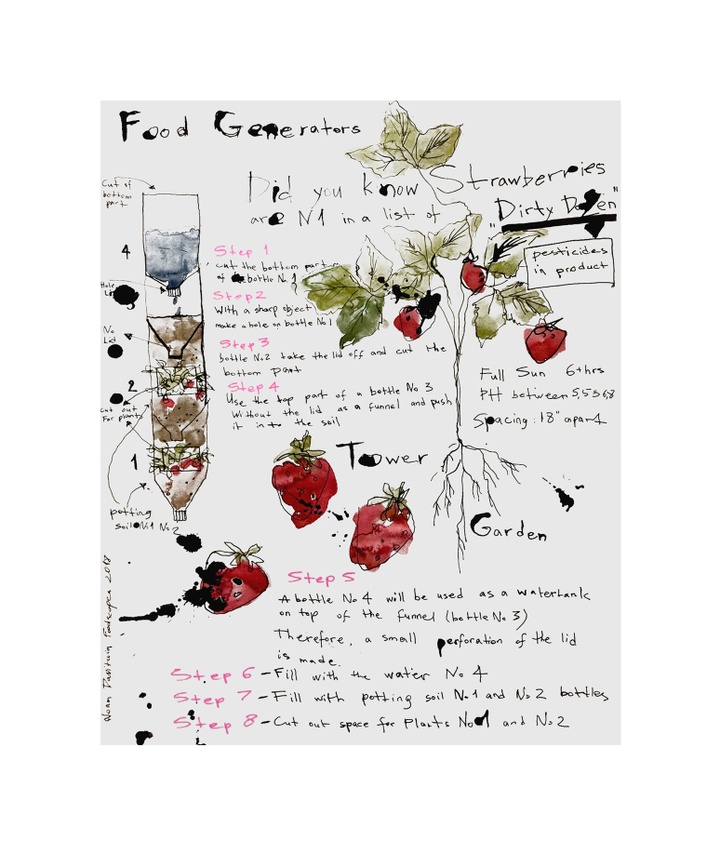 Food Generators
Did you know Strawberries
are N1 in a list of "Dirty Dozen"
pesticides
in product
Cut of
bottom
part
4
Hole
No
Lid
2
cut out
For plants
1
potting
soil No1 No2
Step 1
Cut the bottom part
of bottle No 1
Step2
With a sharp object
make a hole on bottle No1
Step 3
bottle No2 take the lid off and cut the
bottom part
Step 4
Use the top part of a bottle No 3
Without the lid as a funnel and push
it into the soil
Full Sun 6+hrs
PH between
Spacing: 18" apart
Tower
Garden
Step 5
A bottle No 4 will be used as a watertank
on top of the funnel (bottle No 3)
Therefore, a small perforation of the lid
is made.
Step 6 - Fill with the water No 4
Step 7 - Fill with potting soil No1 and No 2 bottles
Step 8 - Cut out space for Plants No1 and No2
Foodscapes 2018